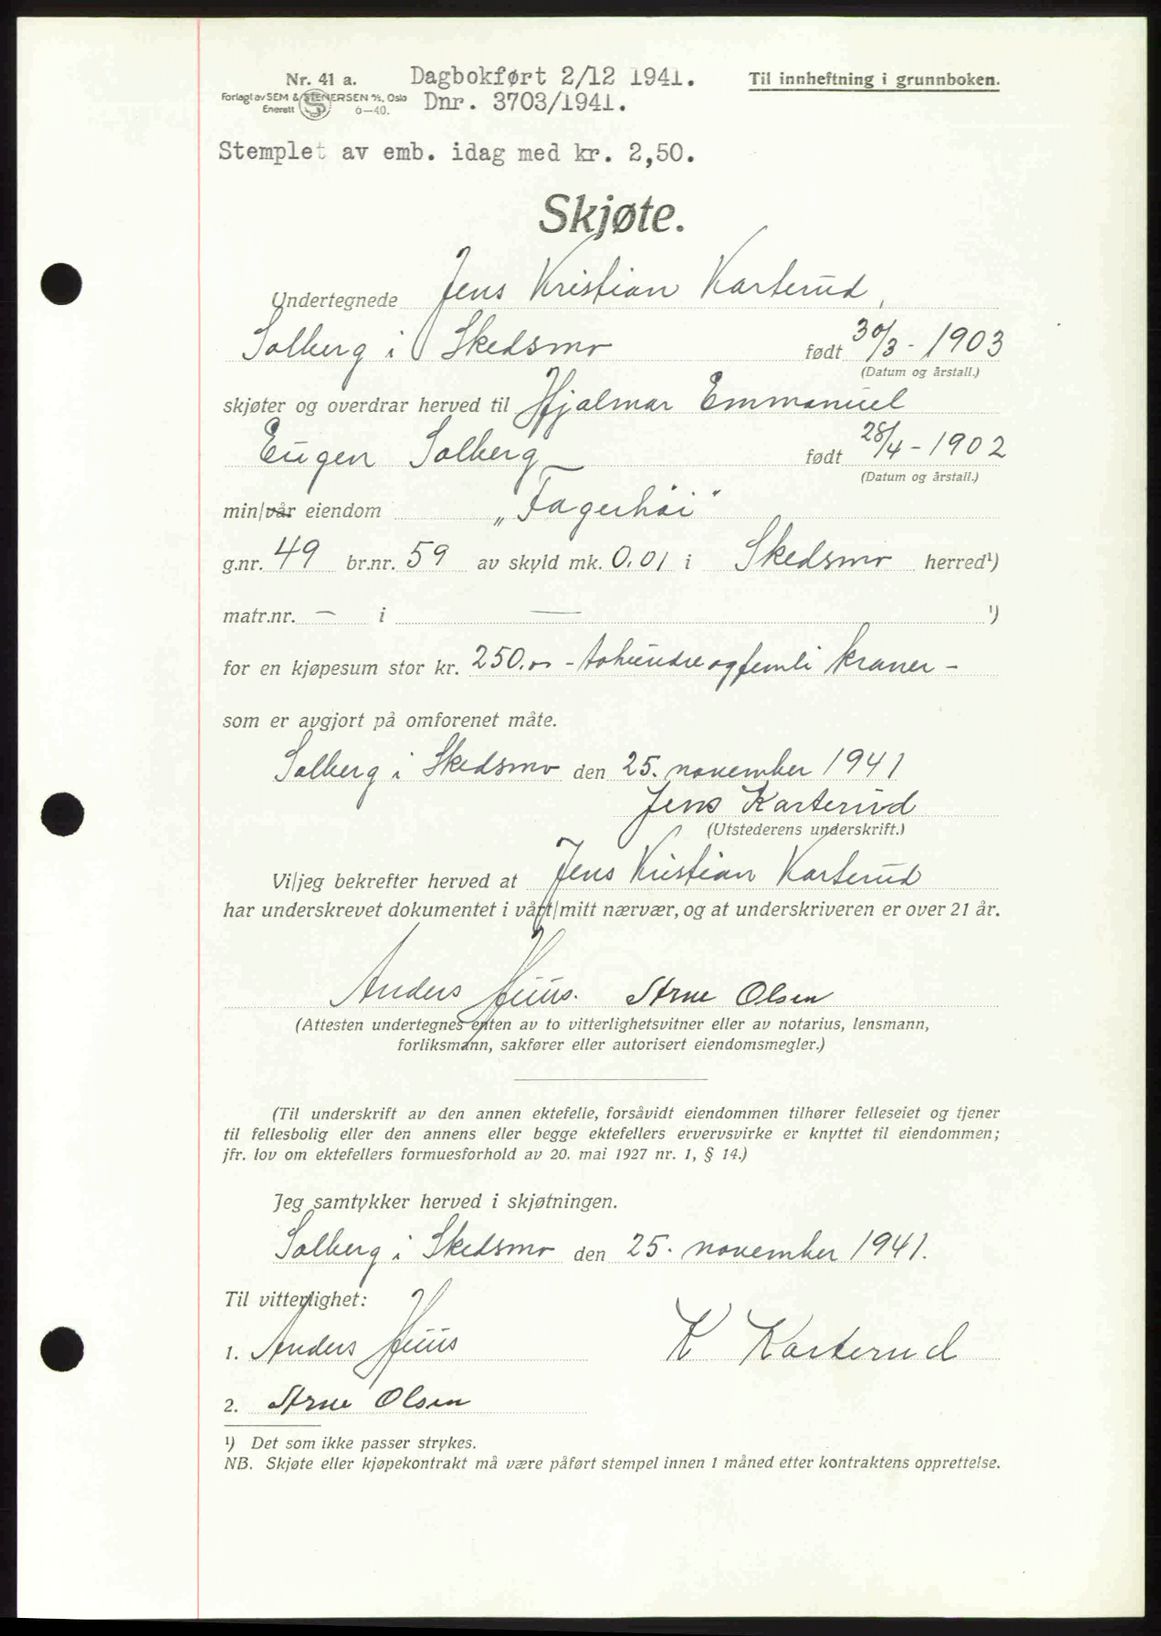 Nr. 41 a.
Forlagt av SEM & STENERSEN A/S, Oslo
Enerett 6—40.
Dagbokført 2/12 1941.
Dnr. 3703/1941.
Til innheftning i grunnboken.
Stemplet av emb. idag med kr. 2,50.
Skjøte.
Undertegnede Jens Kristian Karterud,
Solberg i Skedsmo født 30/3 - 1903
(Datum og årstall.)
skjøter og overdrar herved til Hjalmar Emmanuel
Eugen Solberg født 28/4 - 1902
(Datum og årstall.)
min/vår eiendom „Fagerhøi"
g.nr. 49 br.nr. 59 av skyld mk. 0.01 i Skedsmo herred¹)
matr.nr. — i — ¹)
for en kjøpesum stor kr. 250.oo - tohundreogfemti kroner -
som er avgjort på omforenet måte.
Solberg i Skedsmo den 25. november 1941
Jens Karterud
(Utstederens underskrift.)
Vi/jeg bekrefter herved at Jens Kristian Karterud
har underskrevet dokumentet i vårt/mitt nærvær, og at underskriveren er over 21 år.
Anders Huus. Arne Olsen
(Attesten undertegnes enten av to vitterlighetsvitner eller av notarius, lensmann,
forliksmann, sakfører eller autorisert eiendomsmegler.)
(Til underskrift av den annen ektefelle, forsåvidt eiendommen tilhører felleseiet og tjener
til fellesbolig eller den annens eller begge ektefellers ervervsvirke er knyttet til eiendommen;
jfr. lov om ektefellers formuesforhold av 20. mai 1927 nr. 1, § 14.)
Jeg samtykker herved i skjøtningen.
Solberg i Skedsmo den 25. november 1941.
Til vitterlighet:
1. Anders Huus
K Karterud
2. Arne Olsen
¹) Det som ikke passer strykes.
NB. Skjøte eller kjøpekontrakt må være påført stempel innen 1 måned etter kontraktens opprettelse.